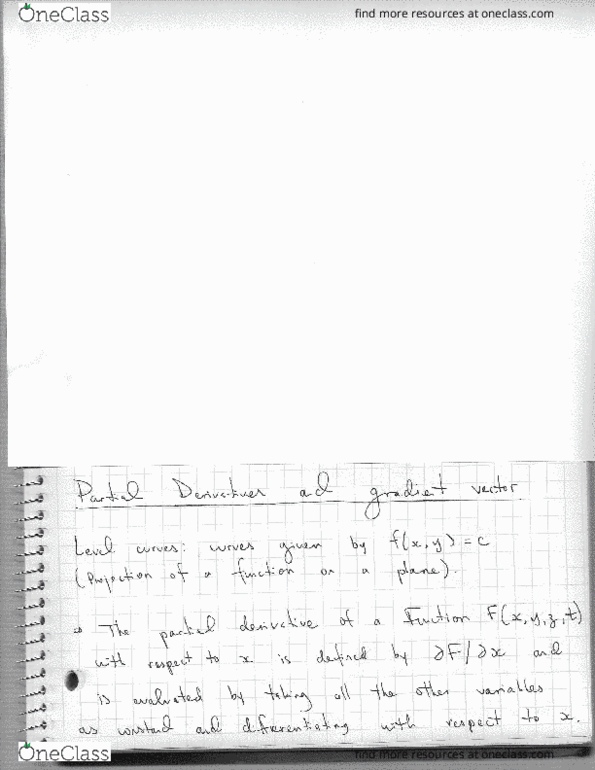 OneClass
find more resources at oneclass.com
Partial Derivatives ad gradient vector.
Level curves: curves given by f(x,y) = c
(Projection of a function on a plane).
→ The partial derivative of a Function F(x,y,z,t)
with respect to x is defined by ∂F/∂x and
is evaluated by taking all the other variables
as constand and differentiating with respect to x.
OneClass
find more resources at oneclass.com